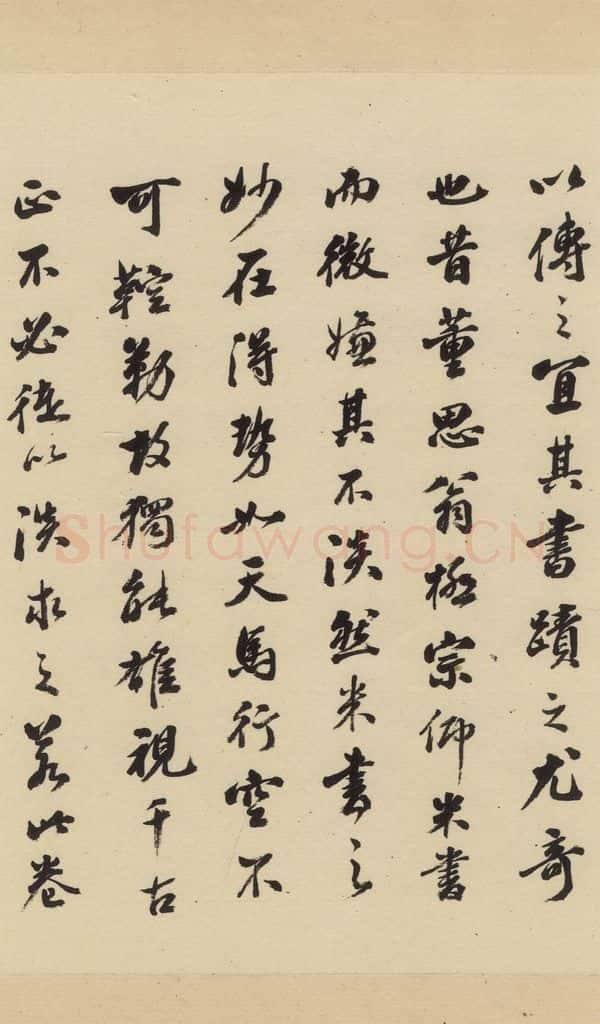 以傳之宜其書蹟之尤奇
也昔董思翁極宗仰米書
而微嫌其不淡然米書之
妙在得勢如天馬行空不
可鞚勒故獨能雄視千古
正不必徒以淡求之若此卷
Shufawang.CN